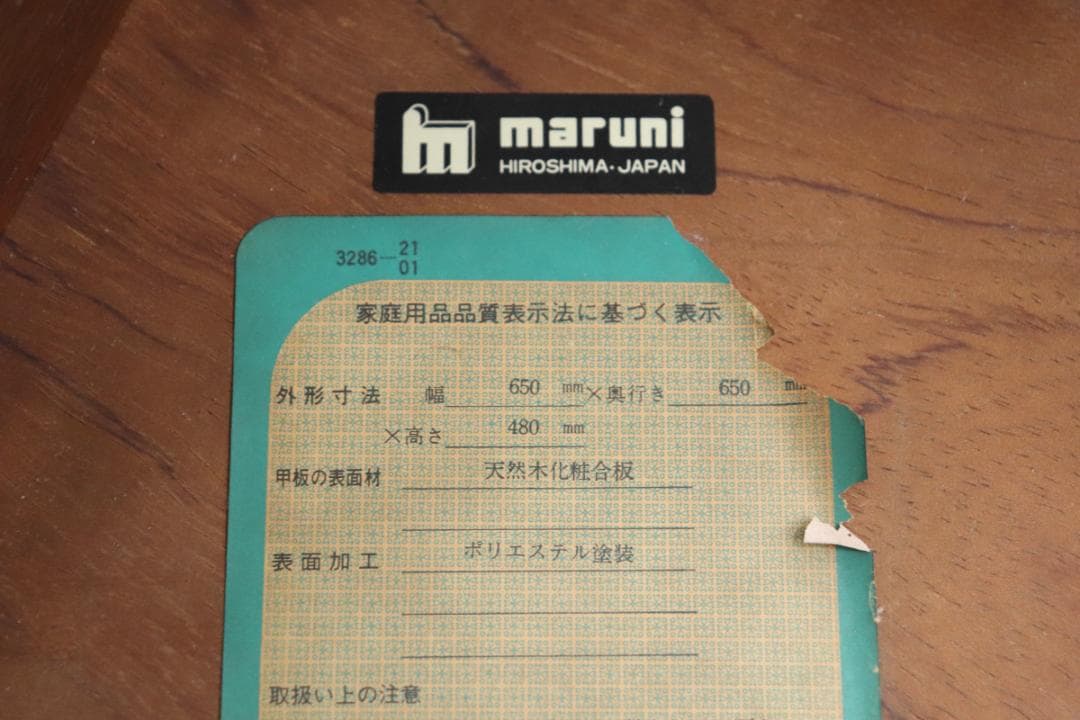 maruni
HIROSHIMA・JAPAN
3286—21
01
家庭用品品質表示法に基づく表示
外形寸法 幅 650 mm×奥行き 650 mm
×高さ 480 mm
甲板の表面材 天然木化粧合板
表面加工 ポリエステル塗装
取扱い上の注意